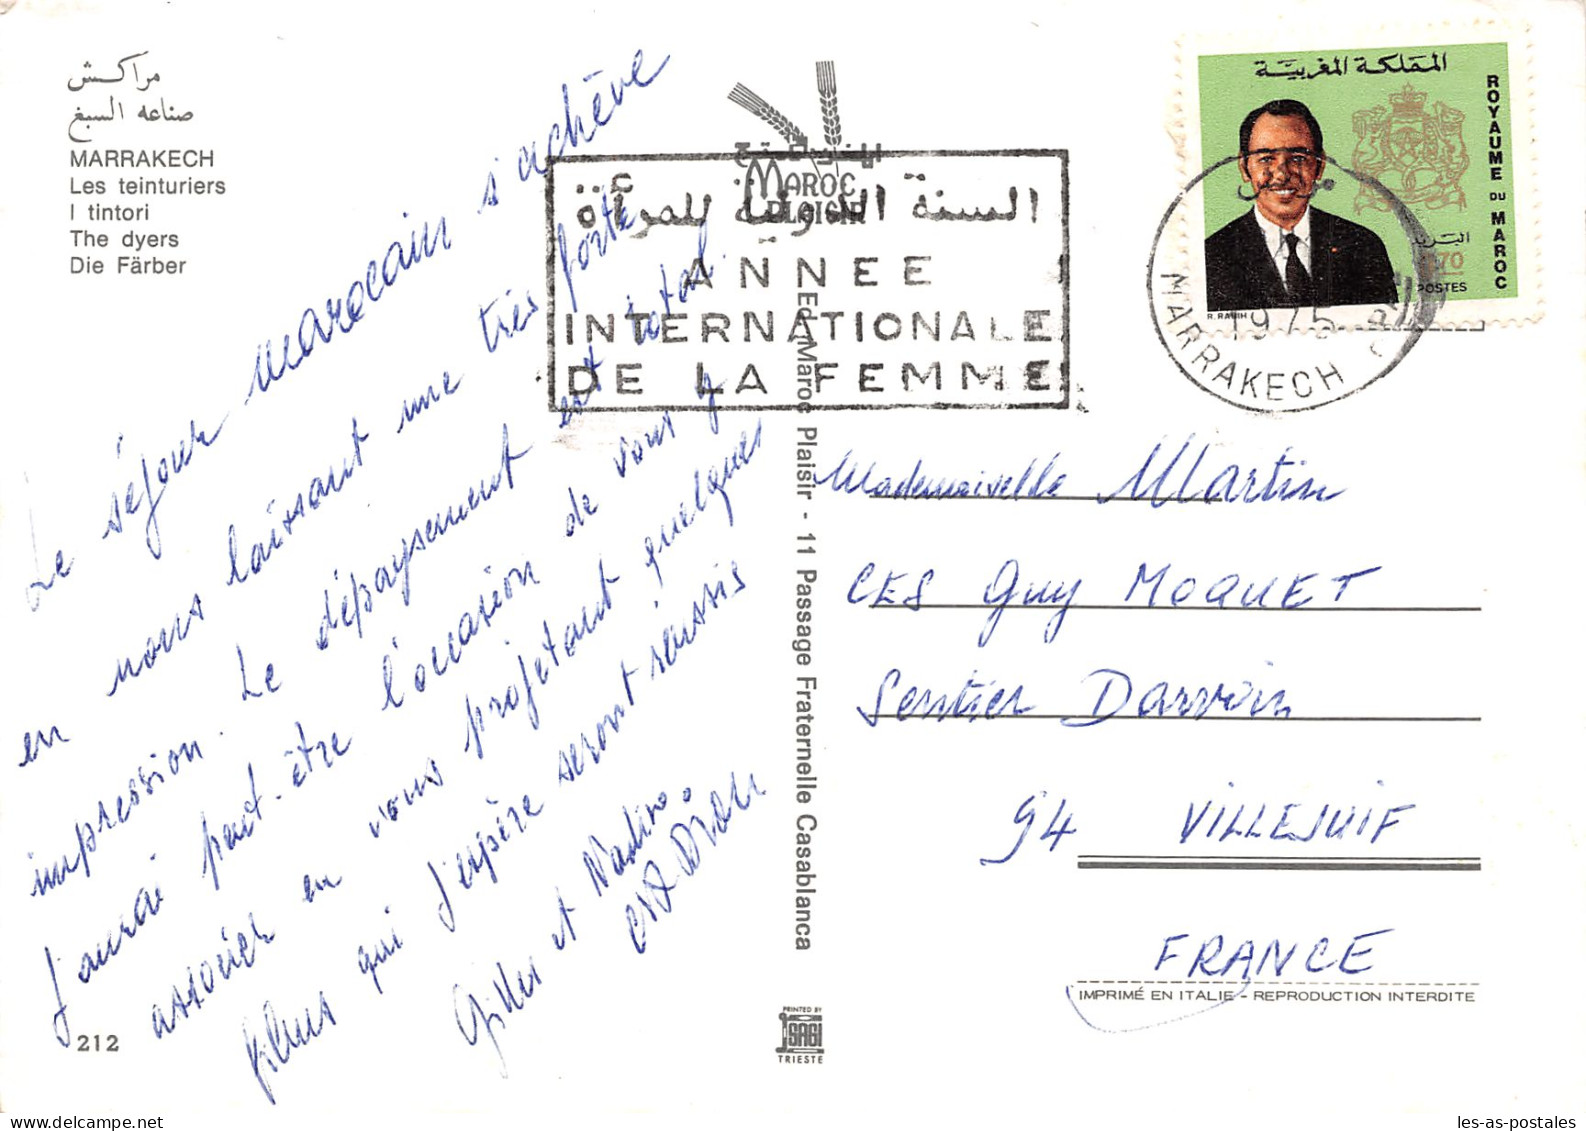 مراكش
صناعه السبغ
MARRAKECH
Les teinturiers
I tintori
The dyers
Die Färber
Le séjour marocain s'achève
en nous laissant une très forte
impression. Le dépaysement est total.
J'aurai peut-être l'occasion de vous y
associer en vous projetant quelques
films qui j'espère seront réussis
Gilles et Nadine.
212
MAROC
PLAISIR
السنة الدولية للمرأة
ANNEE
INTERNATIONALE
DE LA FEMME
Ed. Maroc Plaisir - 11 Passage Fraternelle Casablanca
PRINTED BY
SAGI
TRIESTE
المملكة المغربية
ROYAUME DU MAROC
البريد
70
POSTES
1975
MARRAKECH
Mademoiselle Martin
CES Guy MOQUET
Sentier Darwin
94 VILLEJUIF
FRANCE
IMPRIMÉ EN ITALIE - REPRODUCTION INTERDITE
les-as-postales